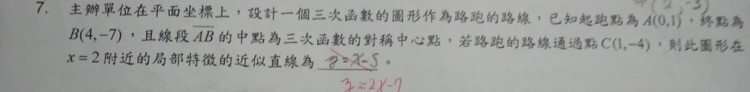 (2,-3)
7. 主辦單位在平面坐標上，設計一個三次函數的圖形作為路跑的路線，已知起跑點為A(0,1)，終點為
B(4,-7)，且線段AB的中點為三次函數的對稱中心點，若路跑的路線通過點C(1,-4)，則此圖形在
x=2附近的局部特徵的近似直線為 y=x-5 。
y=2x-7